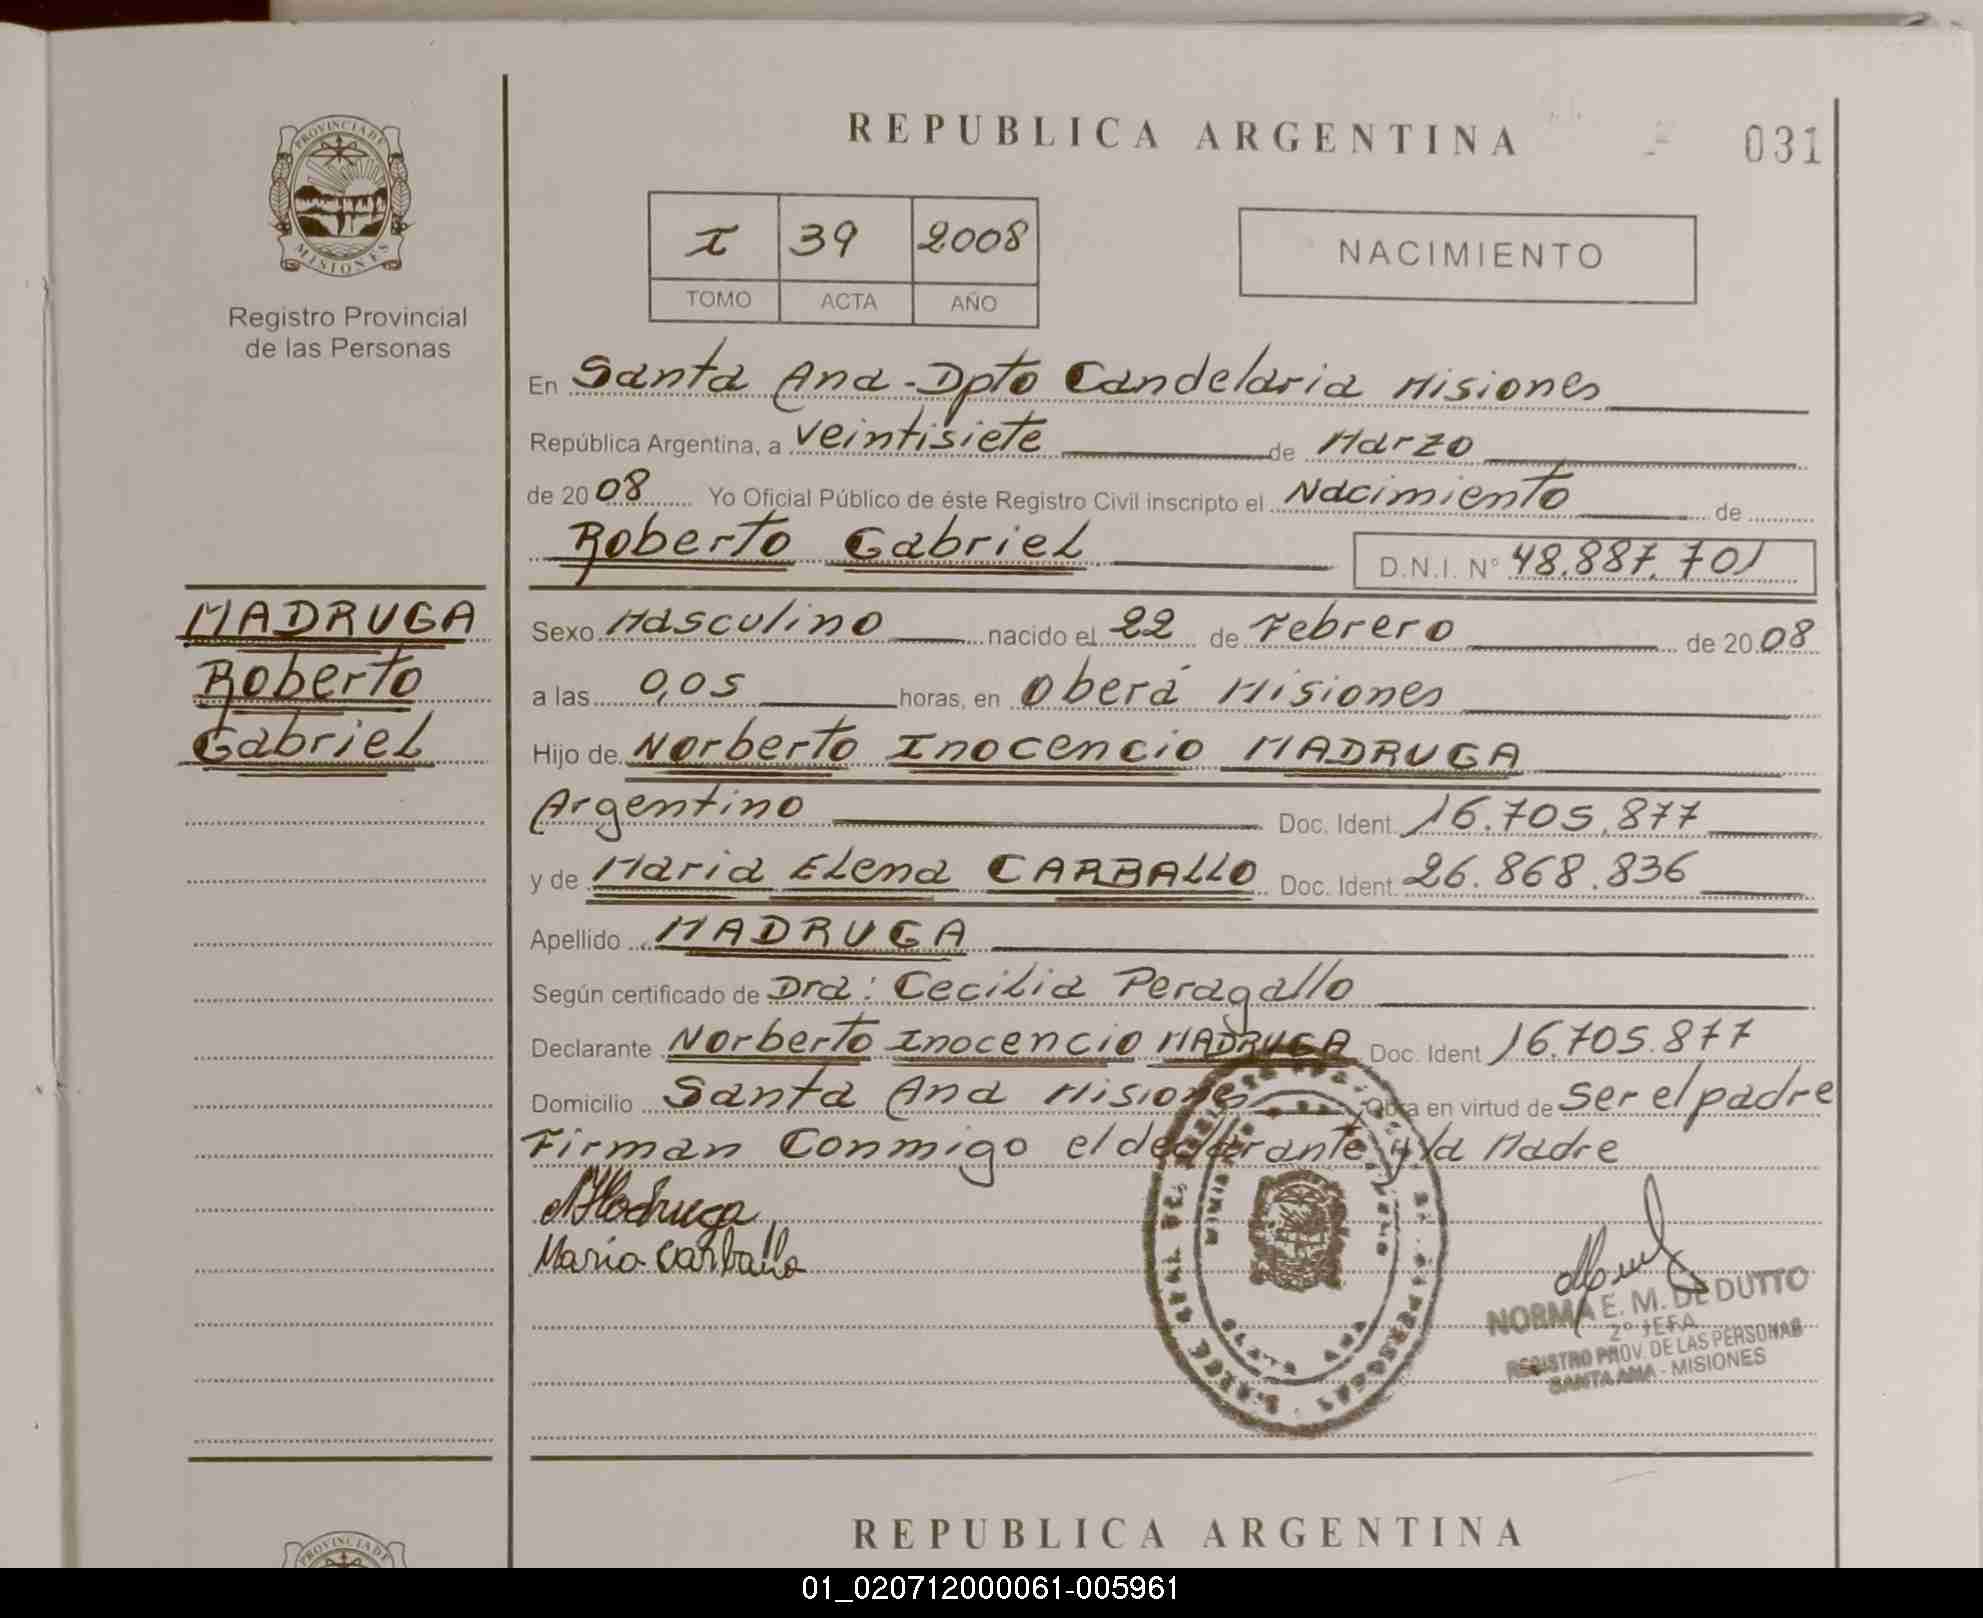 REPUBLICA ARGENTINA
031
PROVINCIA DE
MISIONES
Registro Provincial
de las Personas
I 39 2008
TOMO ACTA AÑO
NACIMIENTO
En Santa Ana - Dpto Candelaria Misiones
República Argentina, a veintisiete de Marzo
de 2008 Yo Oficial Público de éste Registro Civil inscripto el Nacimiento de
Roberto Gabriel D.N.I. N° 48.887.701
MADRUGA
Roberto
Gabriel
Sexo Masculino nacido el 22 de Febrero de 2008
a las 0,05 horas, en Oberá Misiones
Hijo de Norberto Inocencio MADRUGA
Argentino Doc. Ident. 16.705.877
y de Maria Elena CARBALLO Doc. Ident. 26.868.836
Apellido MADRUGA
Según certificado de Dra: Cecilia Peragallo
Declarante Norberto Inocencio MADRUGA Doc. Ident 16.705.877
Domicilio Santa Ana Misiones Obra en virtud de Ser el padre
Firman Conmigo el declarante y la Madre
Madruga
Maria Carballo
NORMA E. M. DE DUTTO
2° JEFA
REGISTRO PROV. DE LAS PERSONAS
SANTA ANA - MISIONES
REPUBLICA ARGENTINA
PROVINCIA DE
01_020712000061-005961